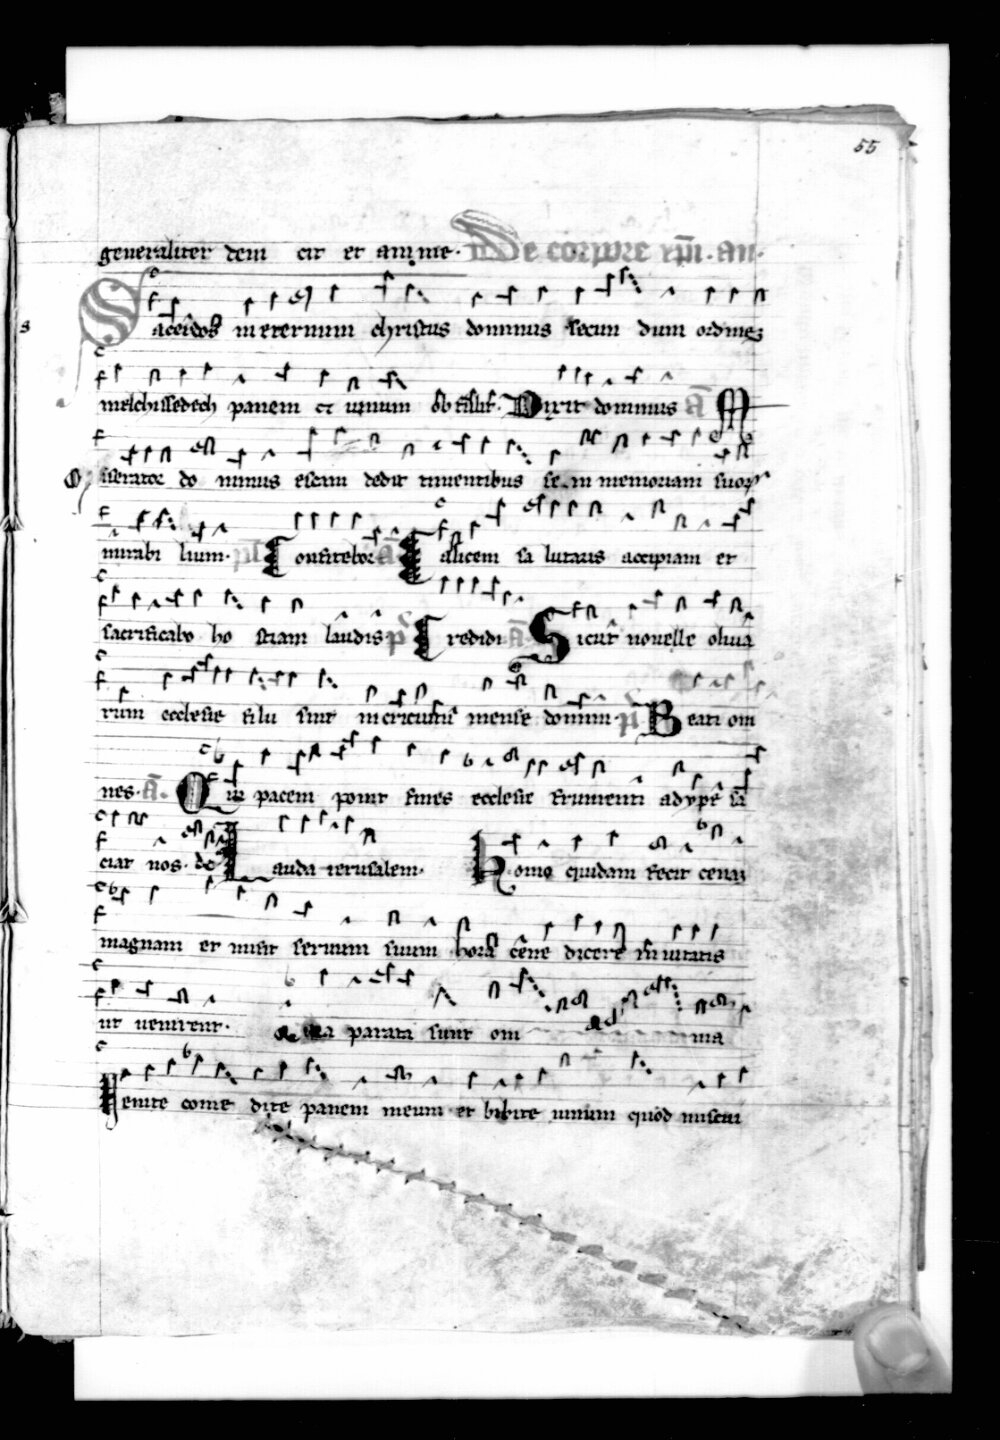 55
generaliter dem cit et anime. De corpore xp̄i. an.
Sacerdos in eternum christus dominus secun dum ordineʒ
melchissedech panem et vinum obtulit. Dixit dominus a̅ M
iserator do minus escam dedit timentibus se in memoriam suoꝝ
mirabi lium. ps̄ Confitebor a̅ Calicem sa lutaris accipiam et
sacrificabo ho stiam laudis p̄ Credidi a̅ Sicut nouelle oliua
rum ecclesie filii sint in circuitu mense domini. p̄s Beati om
nes. a̅. Qui pacem ponit fines ecclesie frumenti adype sa
ciat nos. de Lauda ierusalem. Homo quidam fecit cenaʒ
magnam et misit seruum suum hora cene dicere inuitatis
ut uenirent. Quia parata sunt om nia
Venite come dite panem meum et bibite uinum quod miscui